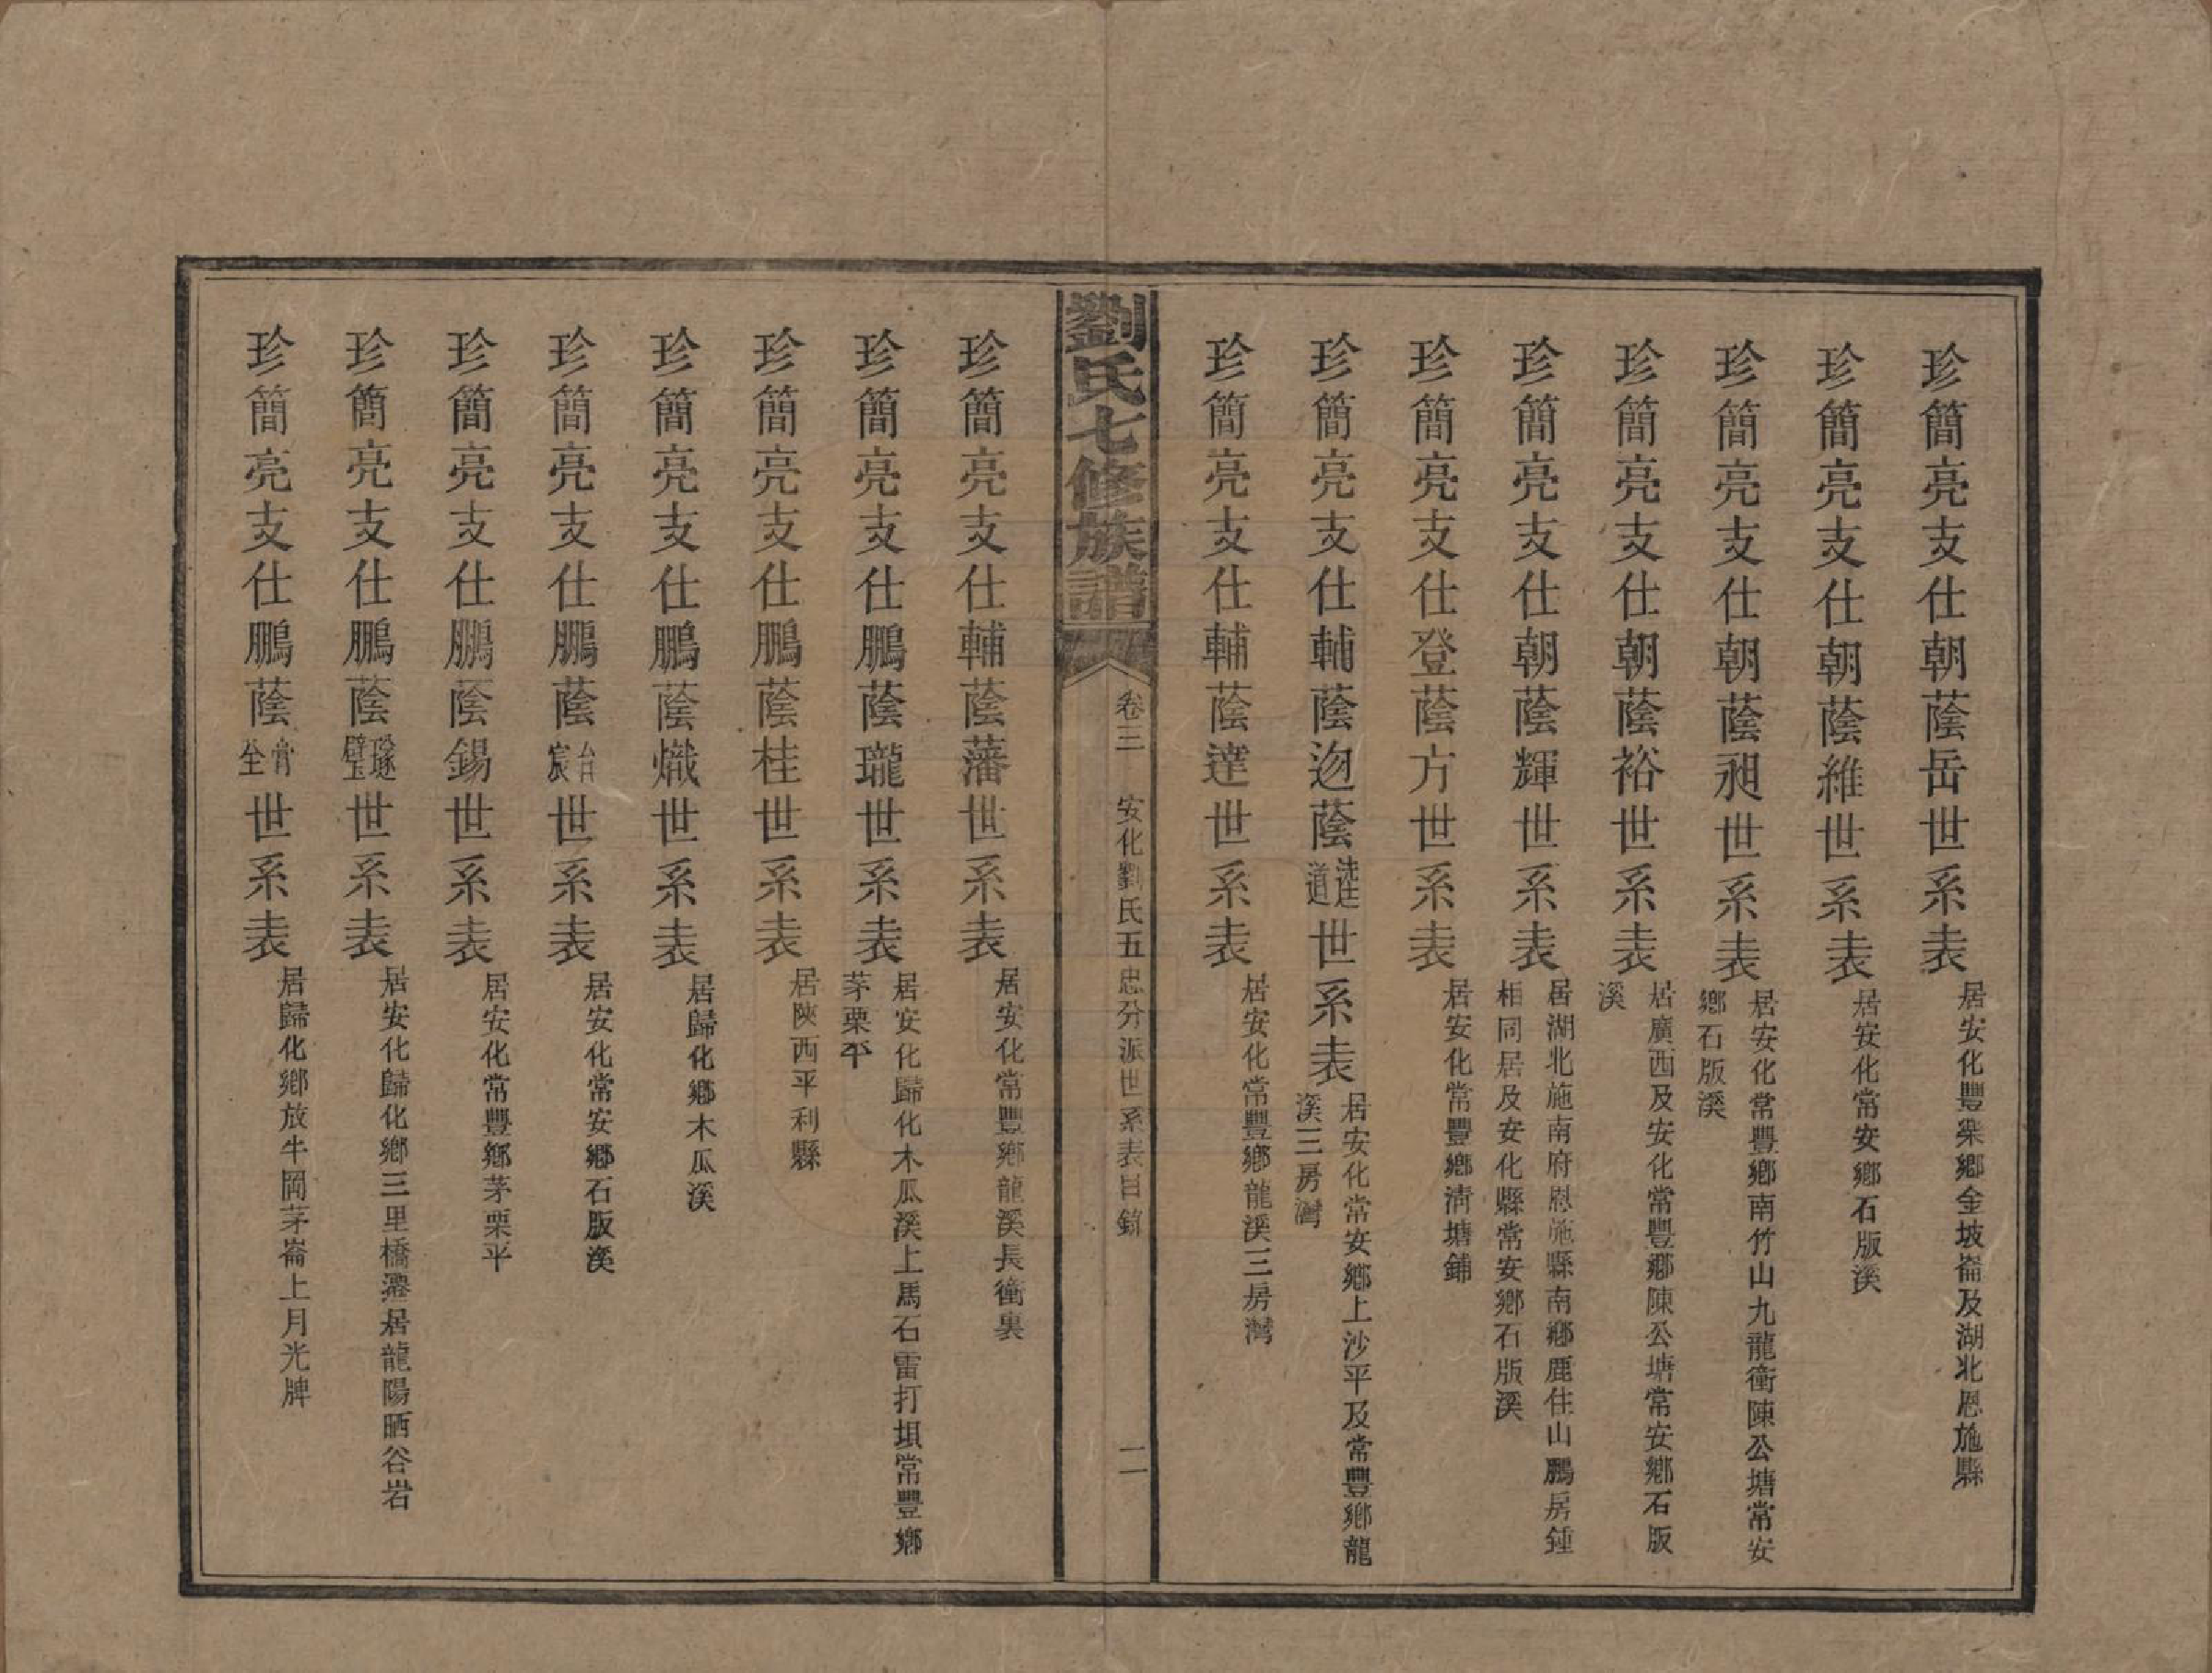 珍簡亮支仕朝蔭岳世系表 居安化豐樂鄉金坡崙及湖北恩施縣
珍簡亮支仕朝蔭維世系表 居安化常安鄉石版溪
珍簡亮支仕朝蔭昶世系表 居安化常豐鄉南竹山九龍衝陳公塘常安
鄉石版溪
珍簡亮支仕朝蔭裕世系表 居廣西及安化常豐鄉陳公塘常安鄉石版
溪
珍簡亮支仕朝蔭輝世系表 居湖北施南府恩施縣南鄉鹿住山鵬房鍾
相同居及安化縣常安鄉石版溪
珍簡亮支仕登蔭方世系表 居安化常豐鄉清塘鋪
珍簡亮支仕輔蔭迯蔭達道世系表 居安化常安鄉上沙平及常豐鄉龍
溪三房灣
珍簡亮支仕輔蔭達世系表 居安化常豐鄉龍溪三房灣
劉氏七修族譜 卷三 安化劉氏五忠分派世系表目錄 二
珍簡亮支仕輔蔭藩世系表 居安化常豐鄉龍溪長衝裏
珍簡亮支仕鵬蔭瓏世系表 居安化歸化木瓜溪上馬石雷打垻常豐鄉
茅栗平
珍簡亮支仕鵬蔭桂世系表 居陝西平利縣
珍簡亮支仕鵬蔭熾世系表 居歸化鄉木瓜溪
珍簡亮支仕鵬蔭台宸世系表 居安化常安鄉石版溪
珍簡亮支仕鵬蔭錫世系表 居安化常豐鄉茅栗平
珍簡亮支仕鵬蔭璲璧世系表 居安化歸化鄉三里橋遷居龍陽晒谷岩
珍簡亮支仕鵬蔭世系表 居歸化鄉放牛岡茅崙上月光牌